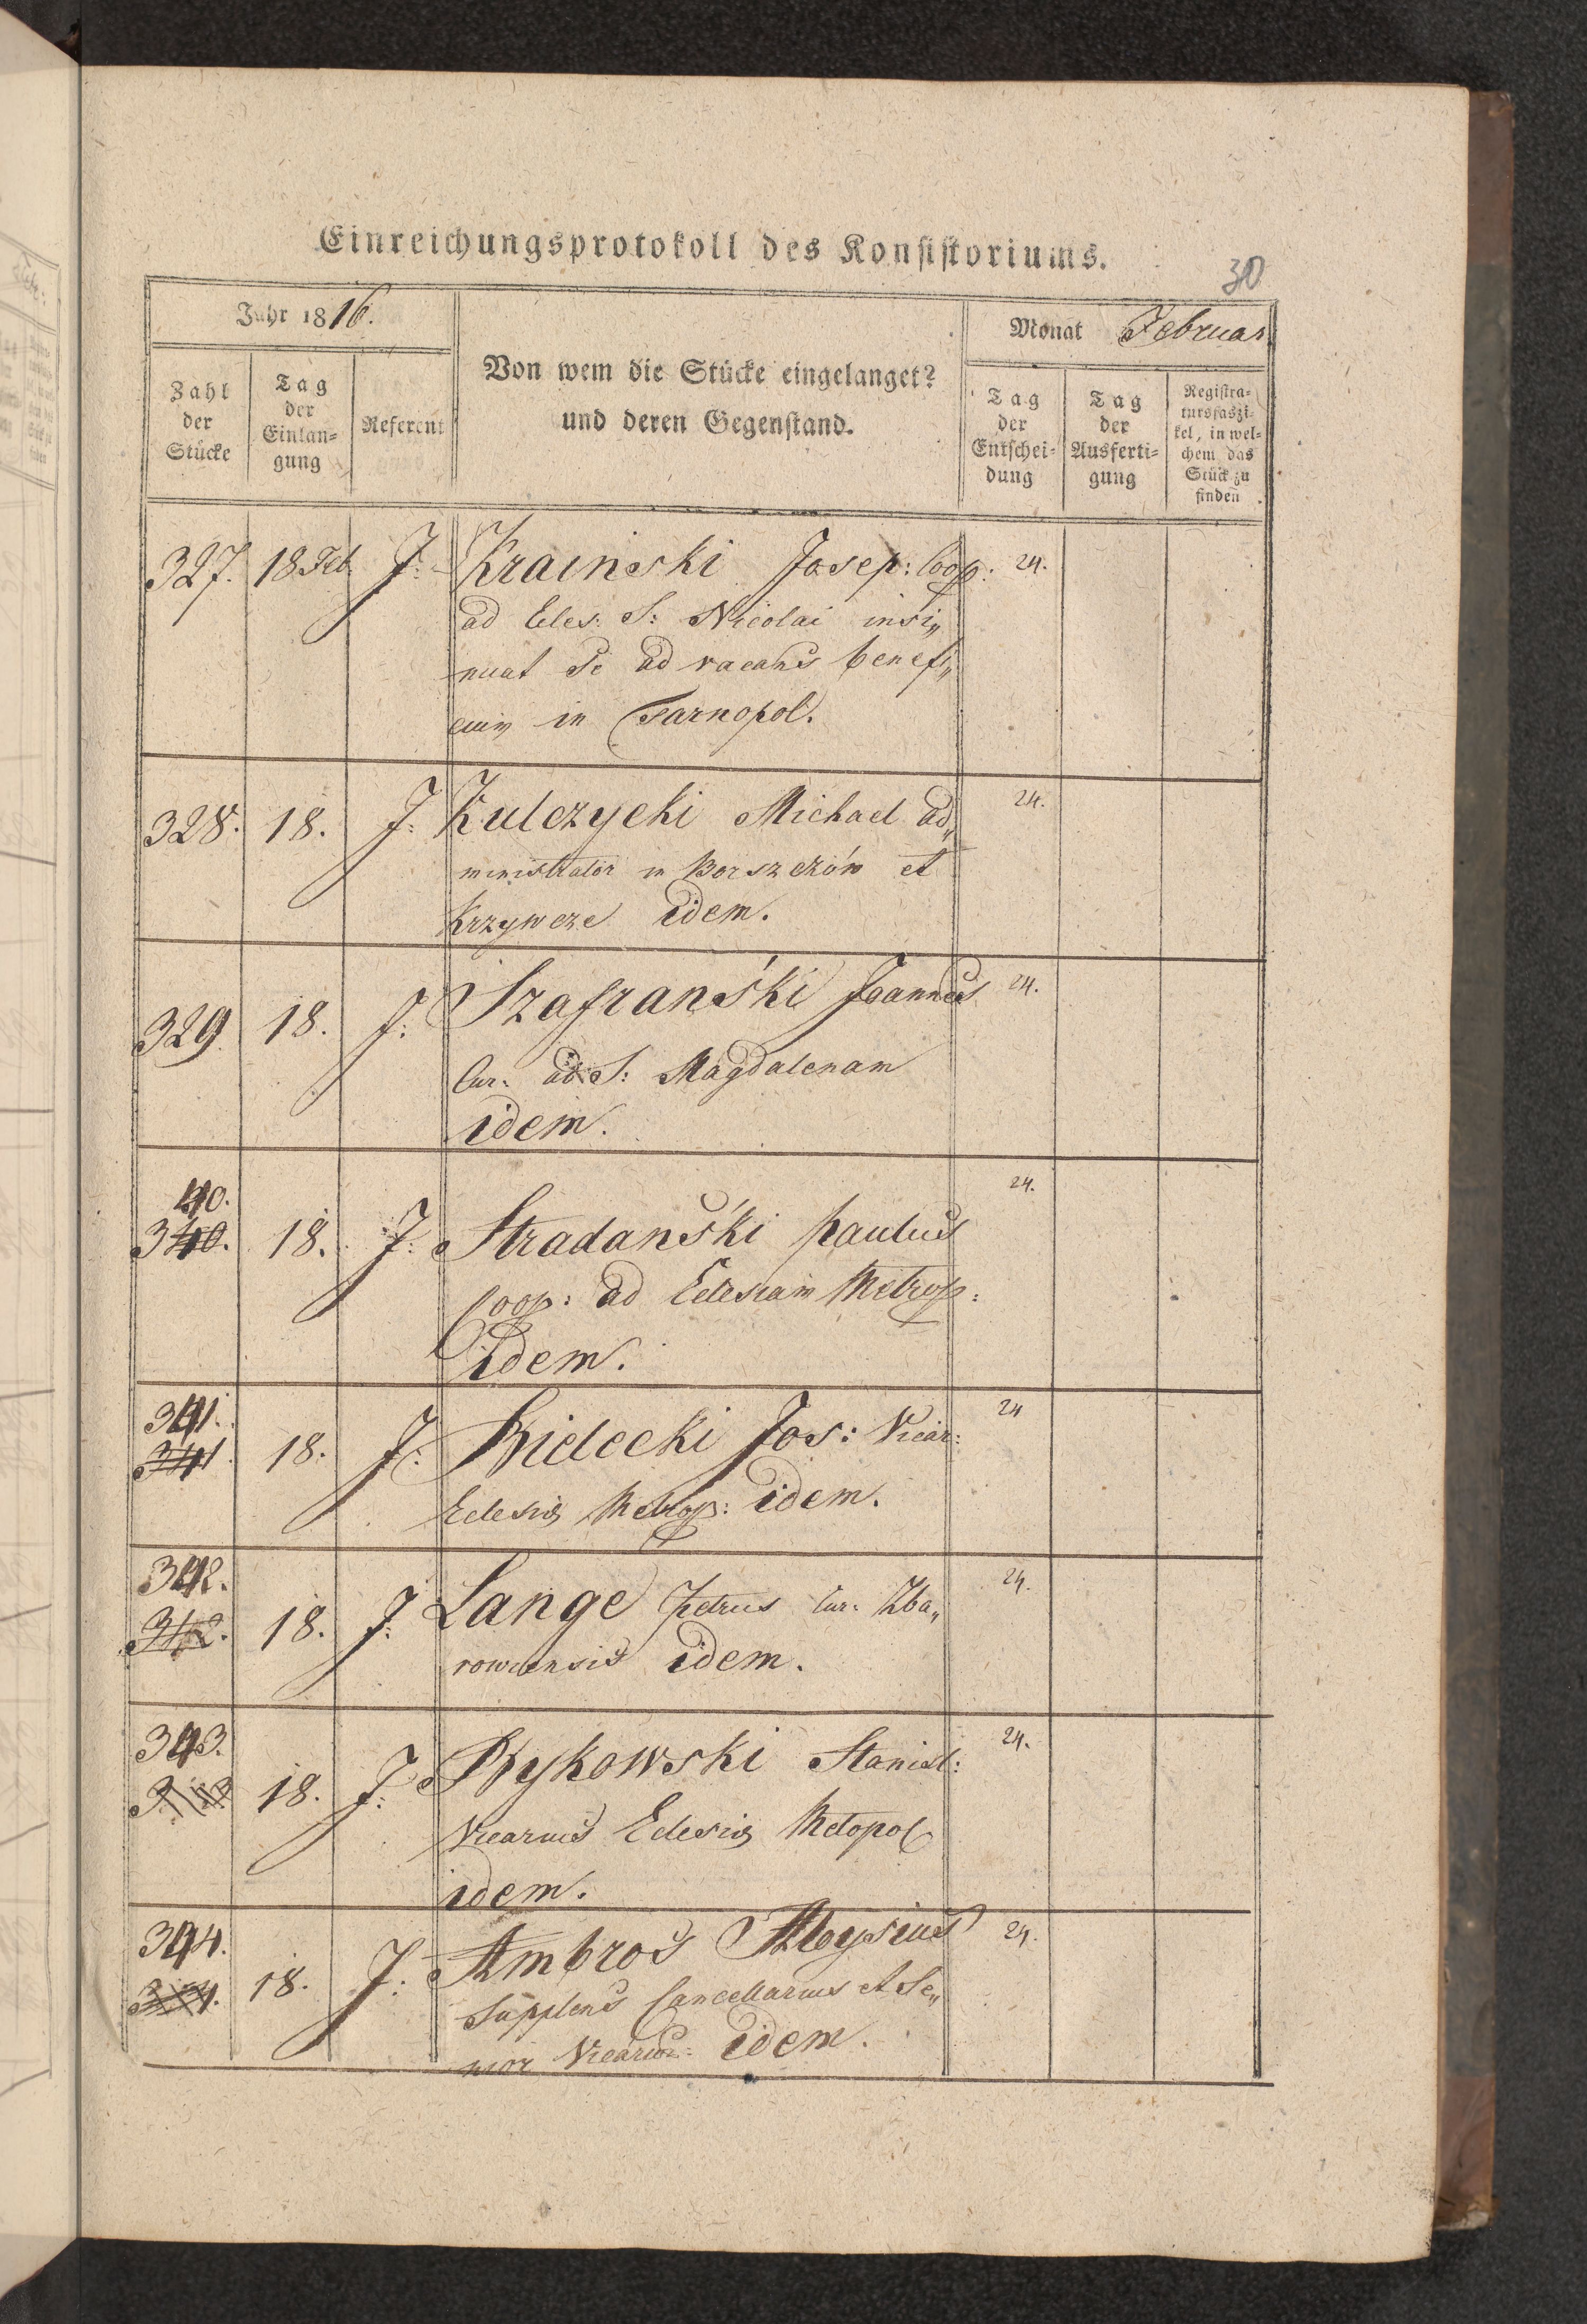 Einreichungsprotokoll des Konsistoriums.
30
Jahr 1816.
Von wem die Stücke eingelanget?
und deren Gegenstand.
Monat Februar
Zahl
der
Stücke
Tag
der
Einlan=
gung
Referent
Tag
der
Entschei=
dung
Tag
der
Ausferti=
gung
Registra=
tursfaszi=
kel, in wel=
chem das
Stück zu
finden
327. 18 Feb J: Krainski Josep: Coop: 24.
ad Ecles: S: Nicolai insi„
nuat se ad vacans benefi„
cium in Tarnopol.
328. 18. J: Kulczycki Michael ad„ 24.
ministrator in Borszczów et
Krzywcze idem.
329 18. J: Szafrański Joannes 24.
Cur. ad S: Magdalenam
idem.
24.
340. 18. J: Stradański Paulus
Coop: ad Eclesiam Metrop:
idem.
341.
341. 18. J: Bielecki Jos: Vicar: 24
Eclesiæ Metrop: idem.
342.
342. 18. J: Lange Petrus Cur. Zba„ 24.
rowiensis idem.
343.
18. J: Bykowski Stanisl: 24.
Vicarius Eclesiæ Metopol
idem.
344.
18. J: Ambros Aloysius 24.
Supplens Cancellarius et Se„
nior Vicarius idem.